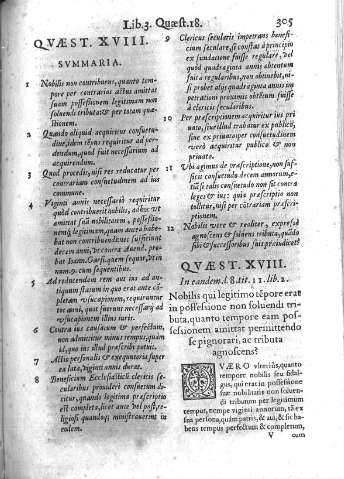 Lib.3. Quæst.18. 305
QVÆST. XVIII.
SVMMARIA.
1 Nobilis non contribuens, quanto tem-
pore per contrarios actus amittat
suam possessionem legitimam non
soluendi tributa: & per totam quæ-
stionem.
2 Quando aliquid acquiritur consuetu-
dine, idem tempus requiritur ad per-
dendum, quod fuit necessarium ad
acquirendum.
3 Quod procedit, nisi res reducatur per
contrariam consuetudinem ad ius
commune.
4 Viginti annis necessariò requiritur
quòd contribuerit nobilis, ad hoc vt
amittat suã possessionem non soluendi,
legitimam, quam antea habe-
bat non contribuendi: sufficiunt
decem anni, vt Couar. docet, & pro-
bat Ioan. Garsi. quem sequor, & in
num. 9. cum sequentibus.
5 Ad reducendum rem aut ius ad an-
tiquum statum in quo erat ante cõ-
pletam præscriptionem, requiruntur
tot anni, quot fuerunt necessarij ad
præscriptionem illius iuris.
6 Contra ius causatum & perfectum,
non admittitur minus tempus, quàm
id, quo ius illud præscribi potuit.
7 Actio personalis & executoria supe-
ea lata, viginti annis durat.
8 Beneficium Ecclesiasticũ clericis se-
cularibus prouideri consuetum di-
citur, quando legitima præscriptio
est completa, licet ante vel post, re-
ligiosi quandoque ministrauerint in
eodem.
9 Clericus secularis impetrans benefi-
cium seculare, si constat à principio
ex fundatione fuisse regulare, vel
quòd quadraginta annis obtentum
fuit à regularibus, non obtinebit, ni-
si probet alijs quadraginta annis im-
petrationi proximis obtentum fuisse
à clericis secularibus.
10 Per præscriptionem acquiritur ius pri-
uato, siue illud trahatur ex publico,
siue ex priuato per consuetudinem
verò acquiritur publica & non
priuato.
11 Vbi agimus de præscriptione, non suf-
ficit consuetudo decem annorum, e-
tiã si talis consuetudo non sit contra
leges & ius: quia præscriptio non
tollitur, nisi per cõtrariam præscri-
ptionem.
12 Nobilis verè & realiter, expressè
agnoscens & soluens tributa, quando
sibi & successoribus suis præiudicet?
QVÆST. XVIII.
In eandem.l.8.tit.11.lib.2.
Nobilis qui legitimo tẽpore erat
in possessione non soluendi tri-
buta, quanto tempore eam pos-
sessionem amittat permittendo
se pignorari, ac tributa
agnoscens?
QVÆRO vlteriùs, quanto
tempore nobilis seu fidal-
gus, qui erat in possessione
suæ nobilitatis non soluen-
di tributum per legitimum
tempus, tempe viginti annorum, tã ex
sua persona, quàm patris, & aui, & sic ha-
bens tempus perfectum & completum,
V cum